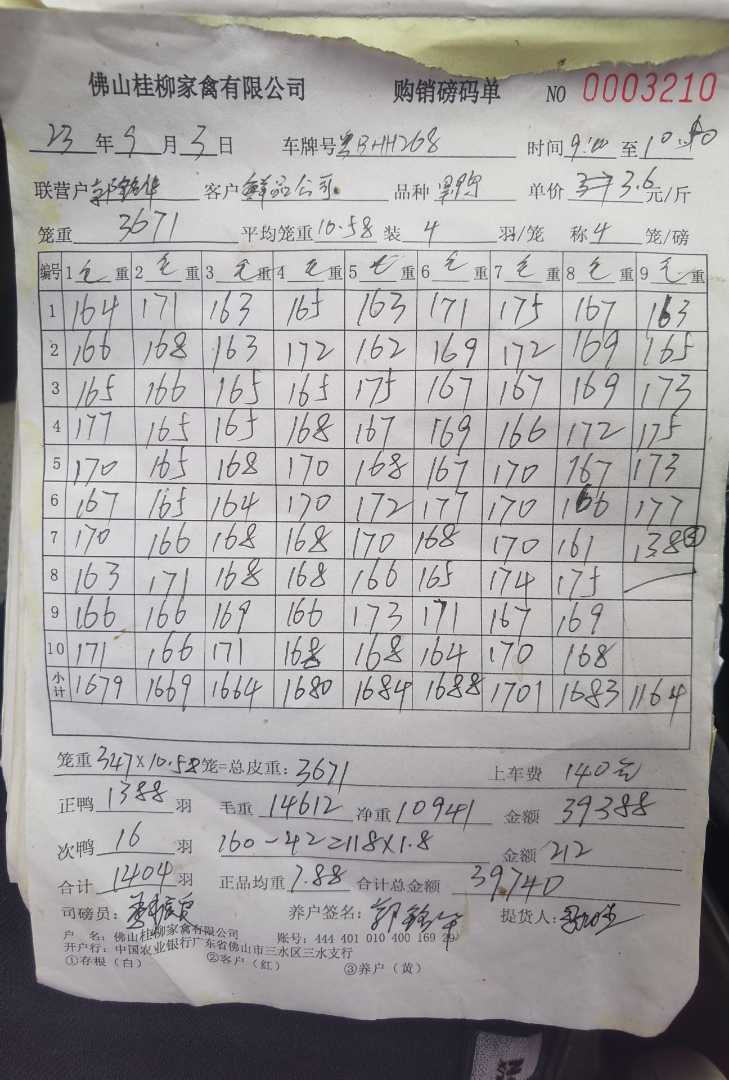 佛山桂柳家禽有限公司 购销磅码单 NO 0003210
23 年 9 月 3 日 车牌号 粤BHH268 时间 9:00 至 10:40
联营户 郭锦华 客户 鲜品公司 品种 单价 3.6 元/斤
笼重 3671 平均笼重 10.58 装 4 羽/笼 称 4 笼/磅
编号 1 毛 重 2 毛 重 3 毛 重 4 毛 重 5 毛 重 6 毛 重 7 毛 重 8 毛 重 9 毛 重
1 164 171 163 165 163 171 175 167 163
2 166 168 163 172 162 169 172 169 165
3 165 166 165 165 175 167 167 169 173
4 177 165 165 168 167 169 166 172 175
5 170 165 168 170 168 167 170 167 173
6 167 165 164 170 172 177 170 166 177
7 170 166 168 168 170 168 170 161 138③
8 163 171 168 168 166 165 174 175
9 166 166 169 166 173 171 167 169
10 171 166 171 168 168 164 170 168
小计 1679 1669 1664 1680 1684 1688 1701 1683 1164
笼重 347×10.58 笼=总皮重: 3671 上车费 140元
正鸭 1388 羽 毛重 14612 净重 10941 金额 39388
次鸭 16 羽 160-42=118×1.8 金额 212
合计 1404 羽 正品均重 7.88 合计总金额 39740
司磅员: 养户签名: 郭锦华 提货人:
户 名: 佛山桂柳家禽有限公司 账号: 444 401 010 400 169 29
开户行: 中国农业银行广东省佛山市三水区三水支行
①存根（白） ②客户（红） ③养户（黄）